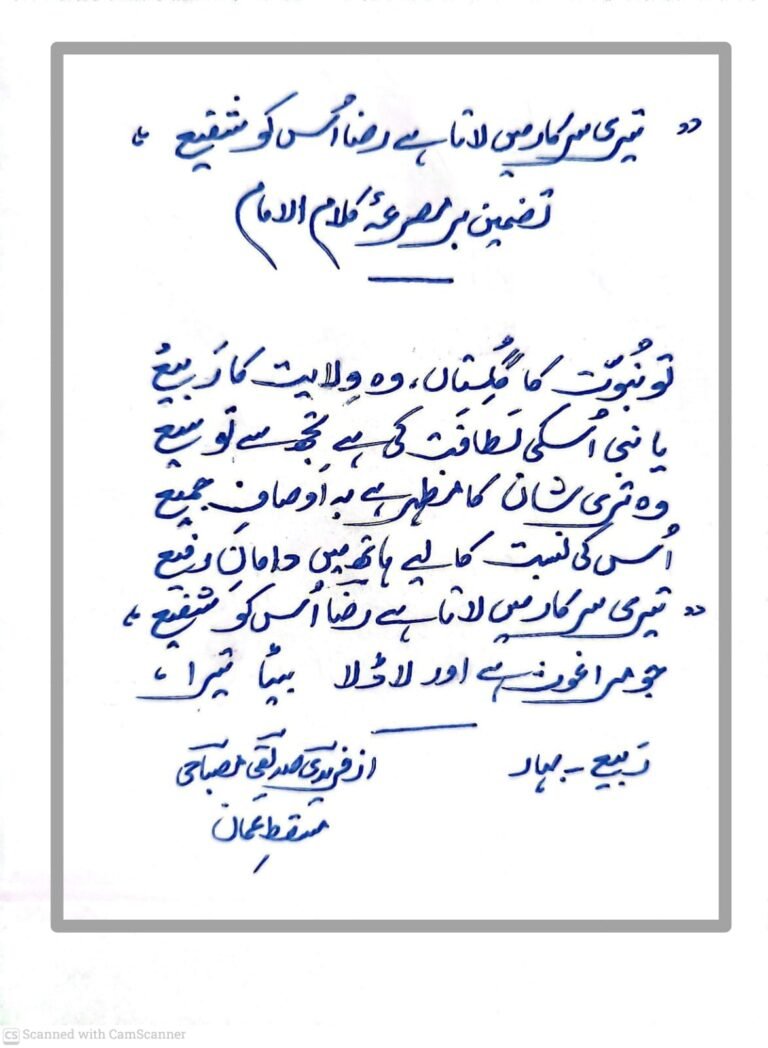 "تیری سرکار میں لاتا ہے رضا اُس کو شفیع"
تضمین بر مصرعۂ کلام الامام
تو نُبُوّت کا گُلِستاں، وہ وِلایت کا رَبیعْ
یا نبی اُسکی لَطافَت کی ہے تجھ سے توسیع
وہ تری شان کا مظہر ہے بہ اَوصافِ جمیع
اُس کی نسبت کا لیے ہاتھ میں دامانِ رفیع
"تیری سرکار میں لاتا ہے رضا اُس کو شفیع"
جو مرا غوث ہے اور لاڈلا بیٹا تیرا،
رَبیع - بہار
از فریدی صدیقی مصباحی
مسقط عمان
CS Scanned with CamScanner